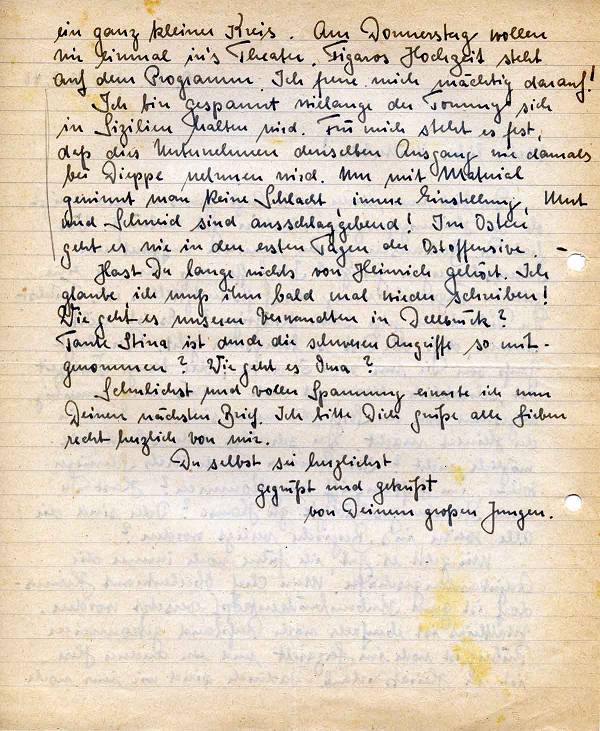 ein ganz kleiner Kreis. Am Donnerstag wollen
wir einmal in's Theater. Figaros Hochzeit steht
auf dem Programm. Ich freue mich mächtig darauf!
Ich bin gespannt wielange der Tommy sich
in Sizilien halten wird. Für mich steht es fest,
daß dies Unternehmen denselben Ausgang wie damals
bei Dieppe nehmen wird. Nur mit Material
gewinnt man keine Schlacht, innere Einstellung, Mut
und Schneid sind ausschlaggebend! Im Osten
geht es wie in den ersten Tagen der Ostoffensive. –
Hast Du lange nichts von Heinrich gehört. Ich
glaube, ich muß ihm bald mal wieder schreiben!
Wie geht es unseren Verwandten in Dellbrück?
Tante Stina ist durch die schweren Angriffe so mit-
genommen? Wie geht es Oma?
Sehnlichst und voller Spannung erwarte ich nun
Deinen nächsten Brief. Ich bitte Dich grüße alle Lieben
recht herzlich von mir.
Du selbst sei herzlichst
gegrüßt und geküßt
von Deinem großen Jungen.